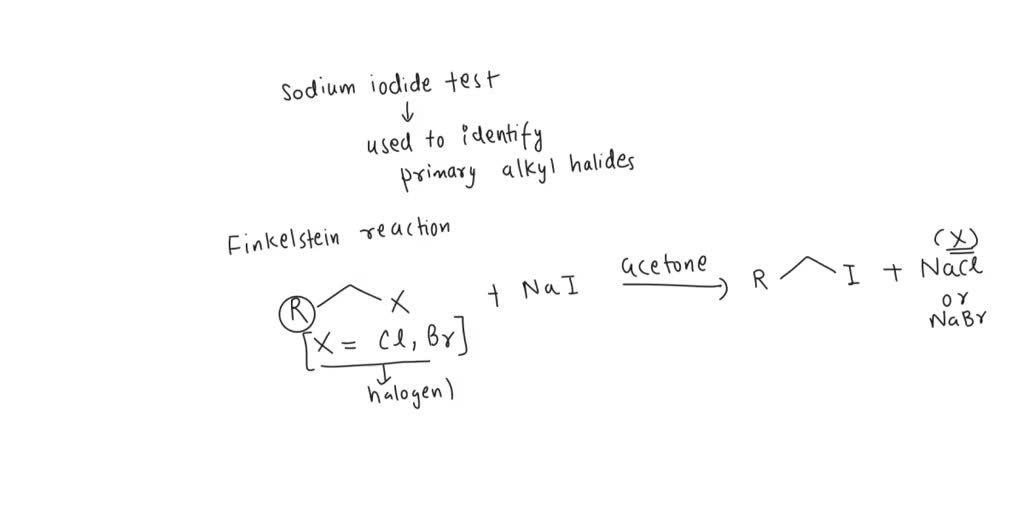 Sodium iodide test
↓
used to identify
primary alkyl halides
Finkelstein reaction
R X + NaI acetone → R I + NaCl (X)
or
NaBr
[X = Cl, Br]
↓
halogen)